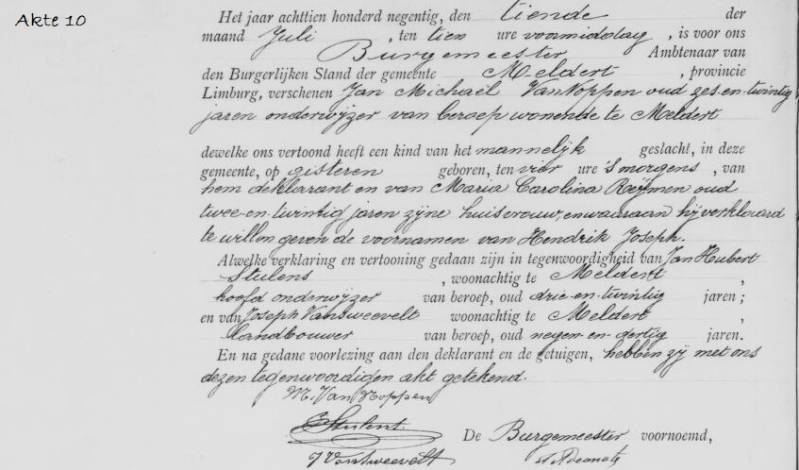 Akte 10
Het jaar achttien honderd negentig, den tiende der
maand Juli , ten tien ure voormiddag , is voor ons
Burgemeester Ambtenaar van
den Burgerlijken Stand der gemeente Meldert , provincie
Limburg, verschenen Jan Michaël VanNoppen oud zes-en-twintig
jaren onderwijzer van beroep wonende te Meldert
dewelke ons vertoond heeft een kind van het mannelijk geslacht, in deze
gemeente, op gisteren geboren, ten vier ure 's morgens , van
hem deklarant en van Maria Carolina Reijmen oud
twee-en-twintig jaren zijne huisvrouw, en waaraan hij verklaard
te willen geven de voornamen van Hendrik Joseph.
Alwelke verklaring en vertooning gedaan zijn in tegenwoordigheid van Jan Hubert
Stulens , woonachtig te Meldert ,
hoofd onderwijzer van beroep, oud drie-en-twintig jaren ;
en van Joseph Vansweevelt woonachtig te Meldert ,
landbouwer van beroep, oud negen-en-dertig jaren.
En na gedane voorlezing aan den deklarant en de getuigen, hebben zij met ons
dezen tegenwoordigen akt geteekend.
M. VanNoppen
Stulens De Burgemeester voornoemd,
J Vansweevelt